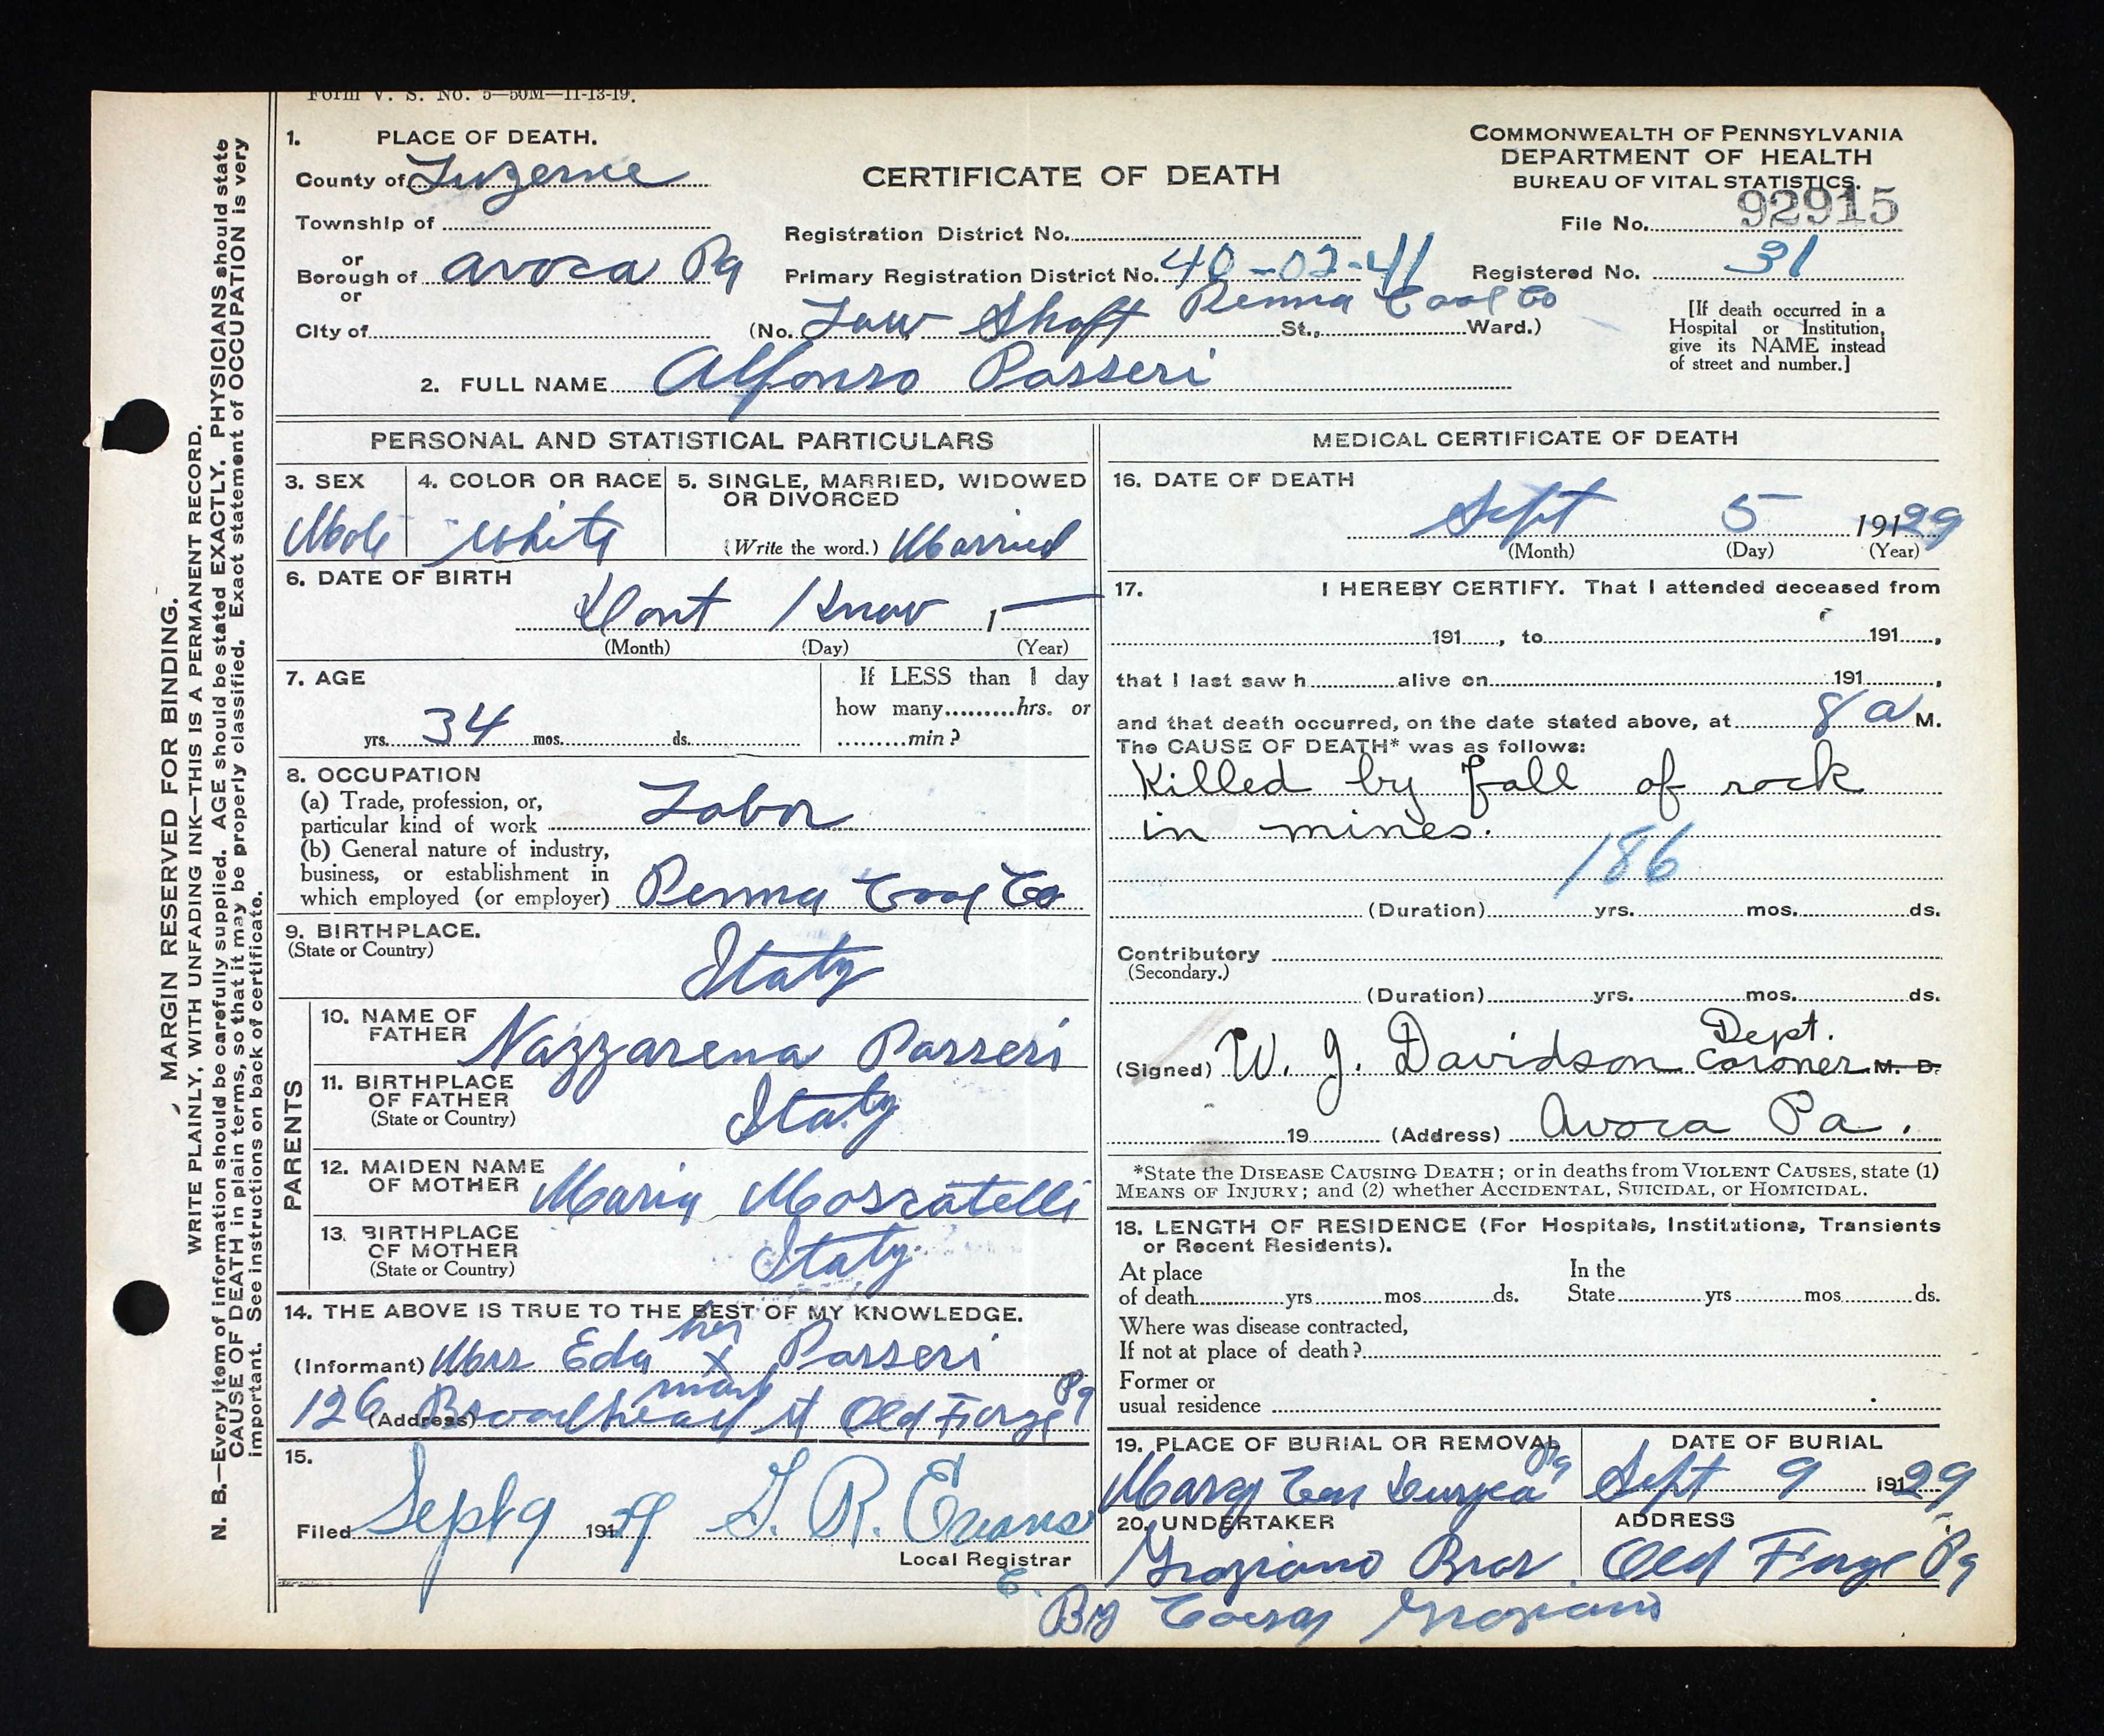 Form V. S. No. 5—50M—11-13-19.
1. PLACE OF DEATH.
County of Luzerne
Township of
or
Borough of Avoca Pa
or
City of
CERTIFICATE OF DEATH
COMMONWEALTH OF PENNSYLVANIA
DEPARTMENT OF HEALTH
BUREAU OF VITAL STATISTICS.
File No. 92915
Registration District No.
Primary Registration District No. 40-02-41
Registered No. 31
(No. Law Shaft Penna Coal Co St., Ward.)
[If death occurred in a
Hospital or Institution,
give its NAME instead
of street and number.]
2. FULL NAME Alfonso Passeri
PERSONAL AND STATISTICAL PARTICULARS
3. SEX
Male
4. COLOR OR RACE
White
5. SINGLE, MARRIED, WIDOWED
OR DIVORCED
(Write the word.) Married
6. DATE OF BIRTH
Dont Know , 1
(Month) (Day) (Year)
7. AGE
yrs. 34 mos. ds.
If LESS than 1 day
how many hrs. or
min?
8. OCCUPATION
(a) Trade, profession, or,
particular kind of work Labor
(b) General nature of industry,
business, or establishment in
which employed (or employer) Penna Coal Co
9. BIRTHPLACE.
(State or Country)
Italy
PARENTS
10. NAME OF
FATHER Nazzarena Passeri
11. BIRTHPLACE
OF FATHER
(State or Country)
Italy
12. MAIDEN NAME
OF MOTHER Maria Moscatelli
13. BIRTHPLACE
OF MOTHER
(State or Country)
Italy
14. THE ABOVE IS TRUE TO THE BEST OF MY KNOWLEDGE.
(Informant) Mrs Eda her x mark Passeri
(Address) 126 Broadhead st Old Forge Pa
15.
Filed Sept 9 1929 T. R. Evans
Local Registrar
MEDICAL CERTIFICATE OF DEATH
16. DATE OF DEATH
Sept 5 19129
(Month) (Day) (Year)
17. I HEREBY CERTIFY. That I attended deceased from
191 , to 191 ,
that I last saw h alive on 191 ,
and that death occurred, on the date stated above, at 8 a M.
The CAUSE OF DEATH* was as follows:
Killed by fall of rock
in mines.
186
(Duration) yrs. mos. ds.
Contributory
(Secondary.)
(Duration) yrs. mos. ds.
(Signed) W. J. Davidson Dept. Coroner M. D.
19 (Address) Avoca Pa.
*State the DISEASE CAUSING DEATH; or in deaths from VIOLENT CAUSES, state (1)
MEANS OF INJURY; and (2) whether ACCIDENTAL, SUICIDAL, or HOMICIDAL.
18. LENGTH OF RESIDENCE (For Hospitals, Institutions, Transients
or Recent Residents).
At place
of death yrs mos ds.
In the
State yrs mos ds.
Where was disease contracted,
If not at place of death?
Former or
usual residence
19. PLACE OF BURIAL OR REMOVAL
Marcy Cem Duryea Pa
DATE OF BURIAL
Sept 9 19129
20. UNDERTAKER
Graziano Bros.
ADDRESS
Old Forge Pa
By Graziano
MARGIN RESERVED FOR BINDING.
WRITE PLAINLY, WITH UNFADING INK—THIS IS A PERMANENT RECORD.
N. B.—Every item of information should be carefully supplied. AGE should be stated EXACTLY. PHYSICIANS should state
CAUSE OF DEATH in plain terms, so that it may be properly classified. Exact statement of OCCUPATION is very
important. See instructions on back of certificate.